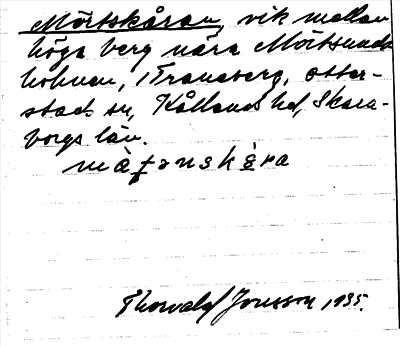 Mörtskåran, vik mellan
höga berg nära Mörtsunds
holmen, Traneberg, Otter-
stads sn, Kållands hd, Skara-
borgs län.
Thorvald Jonsson 1935.